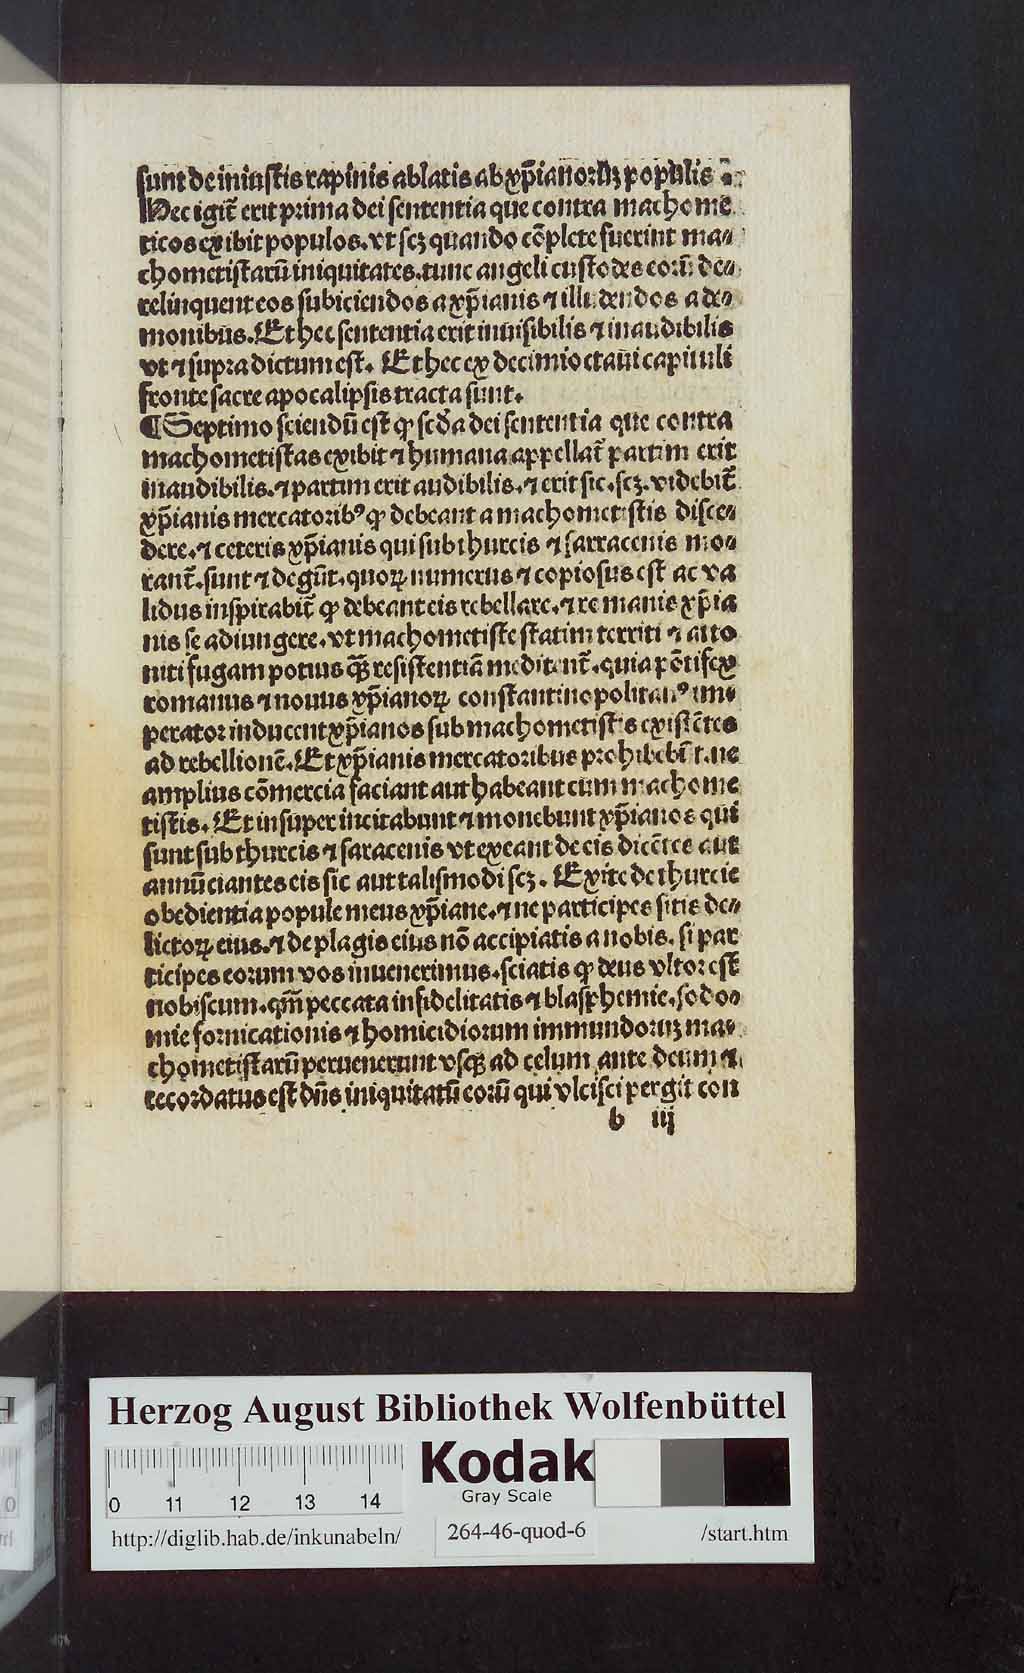 sunt de iniustis rapinis ablatis ab xp̄ianorūʒ populis
Hec igit᷑ erit prima dei sententia que contra machome
ticos exibit populos. vt scʒ quando cōplete fuerint ma⸗
chometistarū iniquitates. tunc angeli custodes eorū de⸗
relinquent eos subiciendos a xp̄ianis ⁊ illudendos a de⸗
monibus. Et hec sententia erit inuisibilis ⁊ inaudibilis
vt ⁊ supra dictum est. Et hec ex decimioctaui capituli
fronte sacre apocalipsis tracta sunt.
¶ Septimo sciendū est ꝙ scd̄a dei sententia que contra
machometistas exibit ⁊ humana appellat᷑ partim erit
inaudibilis. ⁊ partim erit audibilis. ⁊ erit sic. scʒ. videbit᷑
xp̄ianis mercatoribꝰ ꝙ debeant a machometistis disce⸗
dere. ⁊ ceteris xp̄ianis qui sub thurcis ⁊ sarracenis mo⸗
rant᷑. sunt ⁊ degūt. quoꝝ numerus ⁊ copiosus est ac va
lidus inspirabit᷑ ꝙ debeant eis rebellare. ⁊ romanis xp̄ia
nis se adiungere. vt machometiste statim territi ⁊ atto
niti fugam potius qȝ̄ resistentiā meditent᷑. quia pōtifex
romanus ⁊ nouus xp̄ianoꝝ constantinopolitanꝰ im⸗
perator inducent xp̄ianos sub machometistis existētes
ad rebellionē. Et xp̄ianis mercatoribus prohibebūt. ne
amplius cōmercia faciant aut habeant cum machome
tistis. Et insuper incitabunt ⁊ monebunt xp̄ianos qui
sunt sub thurcis ⁊ saracenis vt exeant de eis dicētes aut
annūciantes eis sic aut talismodi scʒ. Exite de thurcie
obedientia popule meus xp̄iane. ⁊ ne participes sitis de⸗
lictoꝝ eius. ⁊ de plagis eius nō accipiatis a nobis. si par
ticipes eorum vos inuenerimus. sciatis ꝙ deus vltor est
nobiscum. qm̄ peccata infidelitatis ⁊ blasphemie. sodo⸗
mie fornicationis ⁊ homicidiorum immundorūʒ ma⸗
chometistarū peruenerunt vsqȝ ad celum ante deum ⁊
recordatus est dn̄s iniquitatū eorū qui vlcisci pergit con
b iij
Herzog August Bibliothek Wolfenbüttel
0 11 12 13 14
Kodak
Gray Scale
http://diglib.hab.de/inkunabeln/
264-46-quod-6
/start.htm